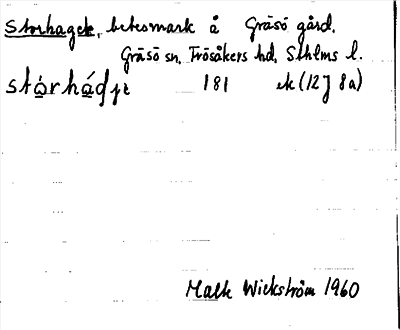 Storhaget, betesmark å Gräsö gård.
Gräsö sn, Frösåkers hd, Sthlms l.
stórhádʒɩ 181 ek (12J 8a)
Malk Wickström 1960